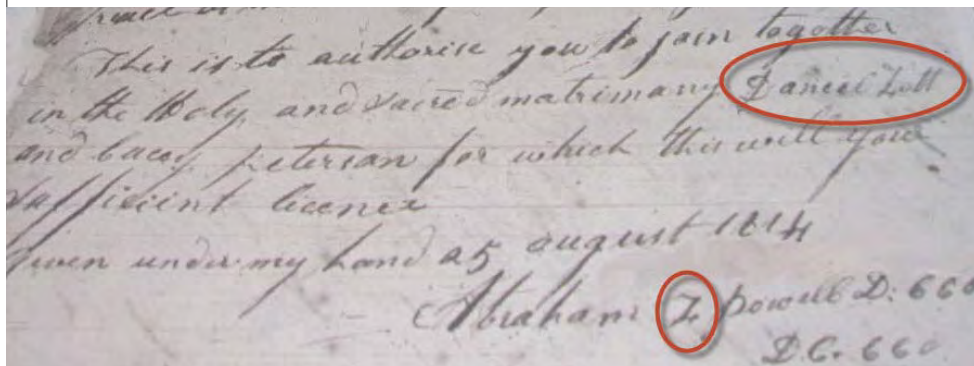 This is to authorise you to join together
in the Holy and sacred matrimany Daniel Lott
and bacey peterson for which this will your
sufficient licence
Given under my hand 25 august 1814
Abraham L powell D. 660
D.C. 660